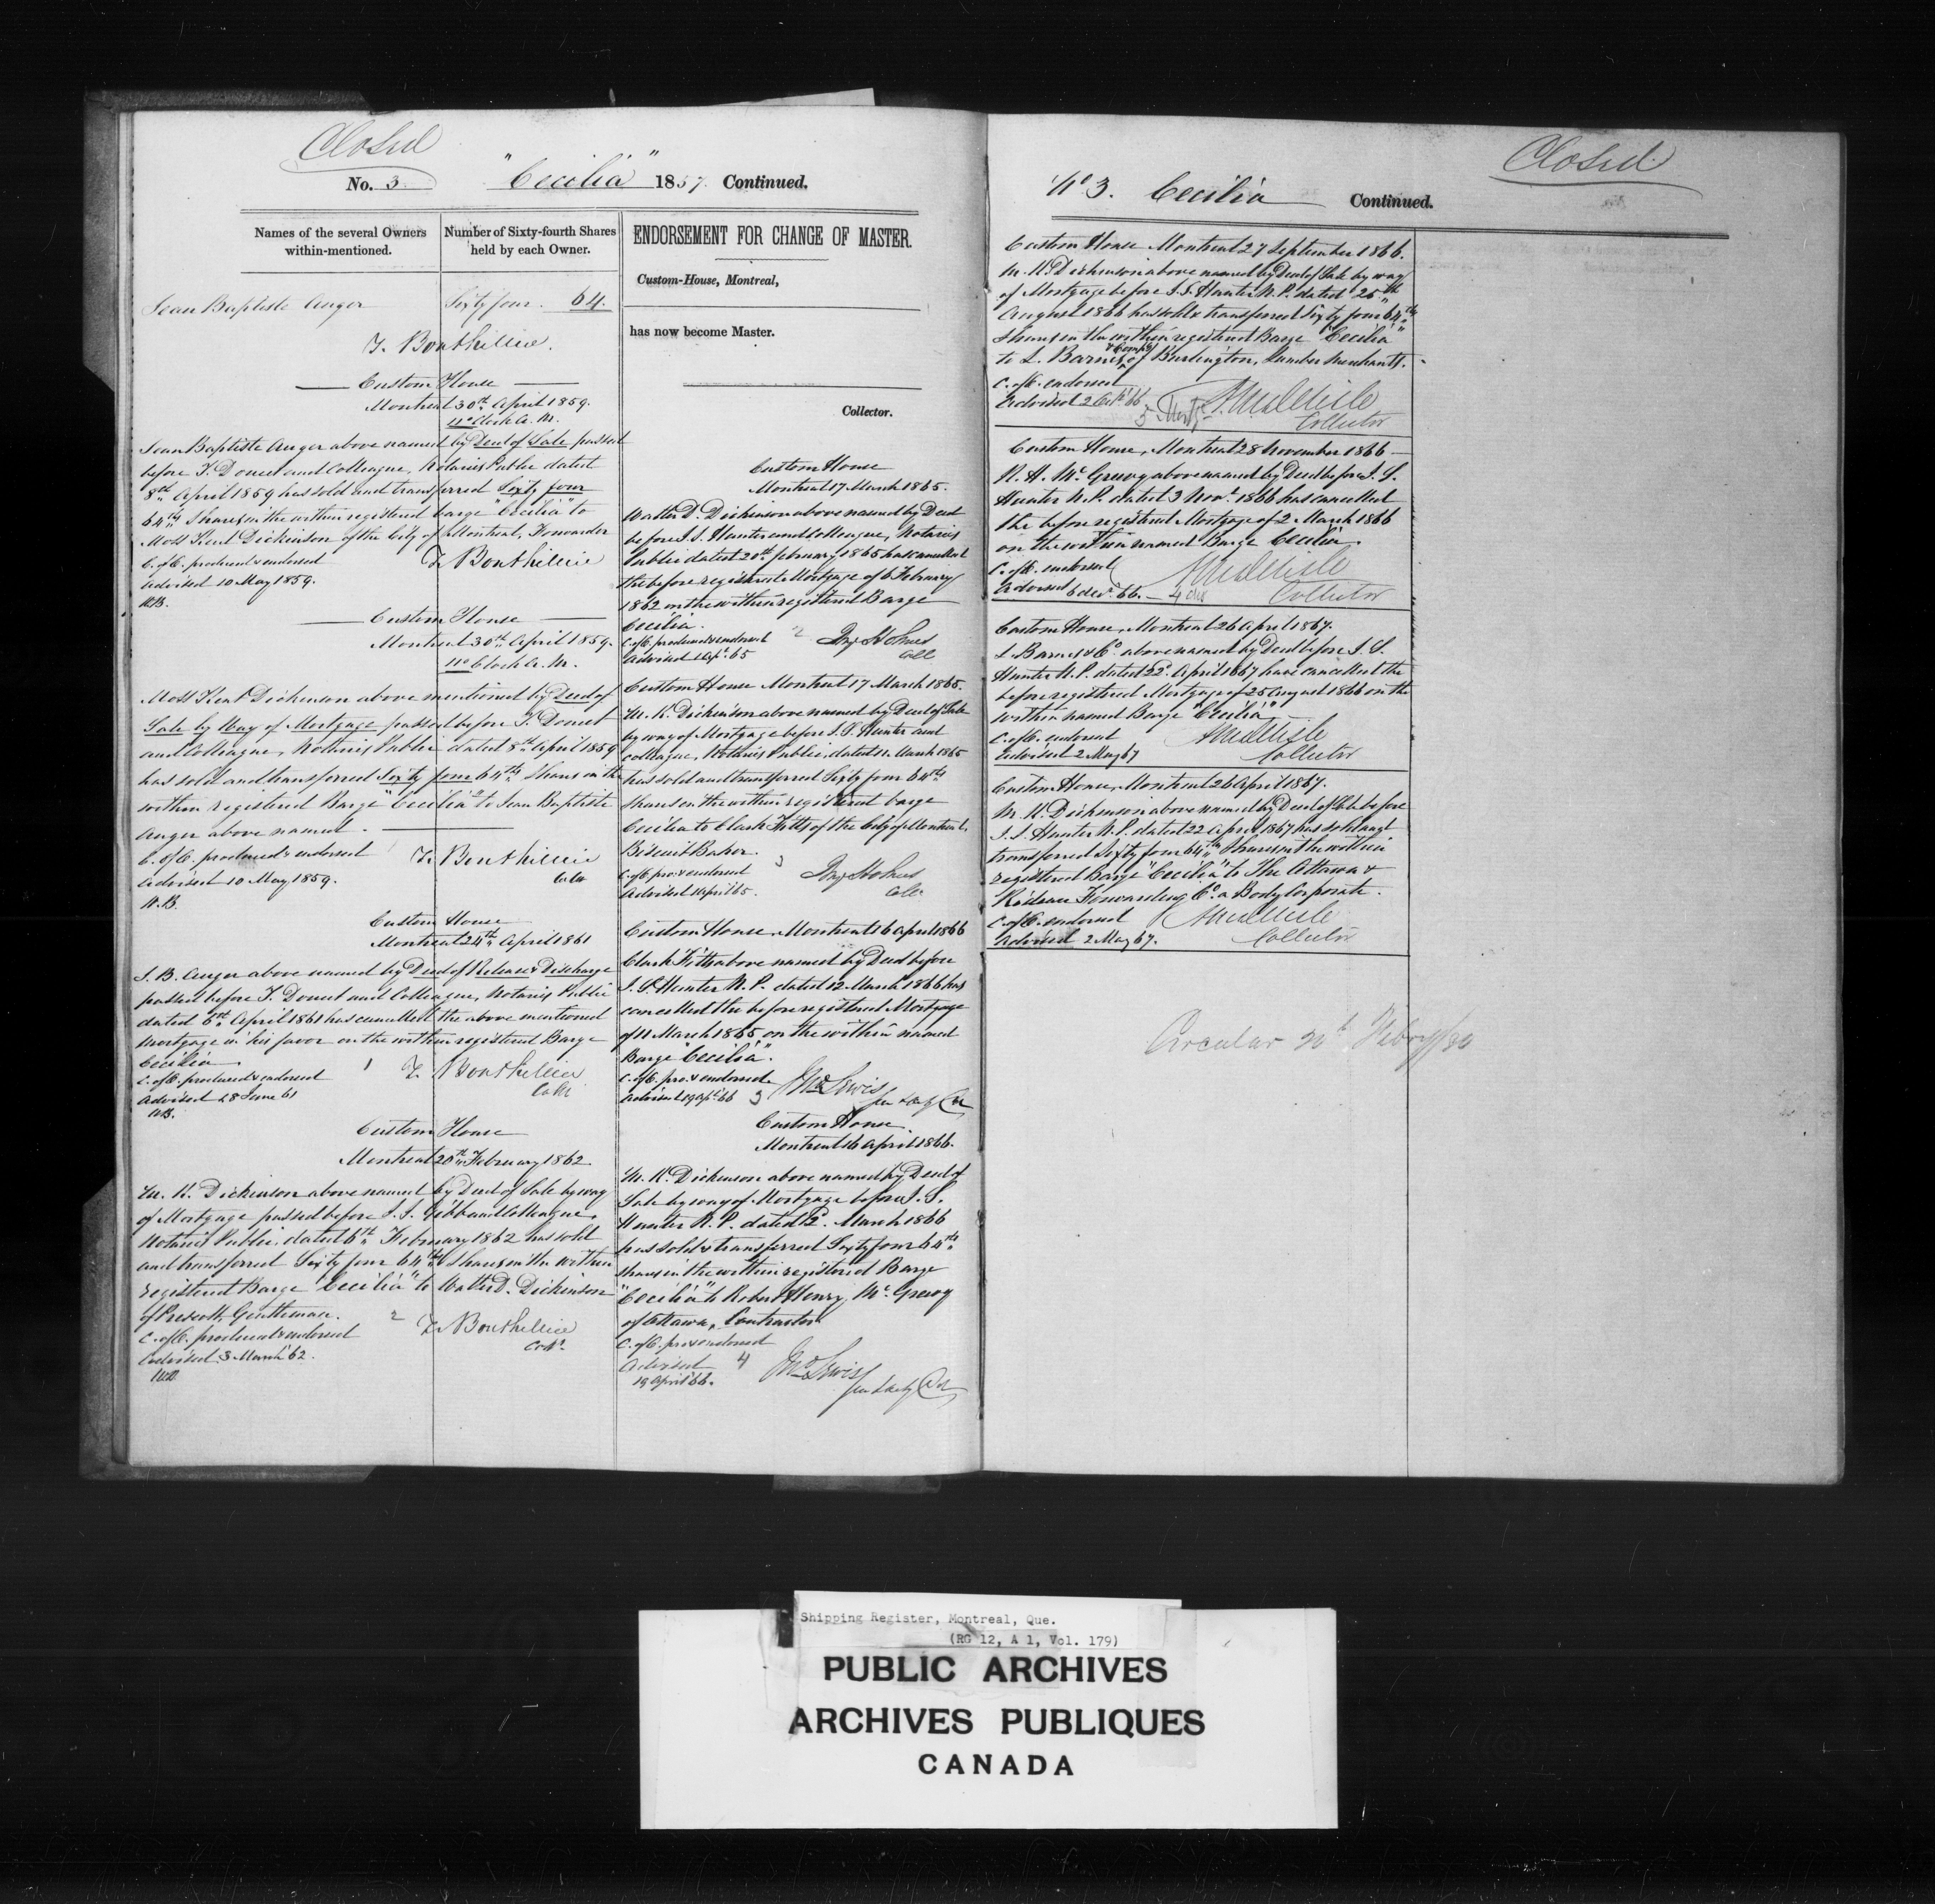 Closed
No. 3. "Cecilia" 1857. Continued.
Names of the several Owners within-mentioned.
Number of Sixty-fourth Shares held by each Owner.
Jean Baptiste Anger Sixty four. 64.
T. Bouthillier.
Custom House
Montreal 30th April 1859.
11 o'Clock A.M.
Jean Baptiste Anger above named by Deed of Sale passed
before T. Doucet and Colleague, Notaries Public dated
8th April 1859 has sold and transferred Sixty four
64ths Shares in the within registered barge "Cecilia" to
Moss Kent Dickinson of the City of Montreal, Forwarder
C. of C. produced & endorsed T. Bouthillier
Advised 10 May 1859.
Custom House
Montreal 30th April 1859.
11 o'Clock A.M.
Moss Kent Dickinson above mentioned by Deed of
Sale by Way of Mortgage passed before T. Doucet
and Colleague, Notaries Public dated 8th April 1859
has sold and transferred Sixty four 64ths Shares in the
within registered Barge "Cecilia" to Jean Baptiste
Anger above named.
C. of C. produced & endorsed 1 T. Bouthillier
Advised 10 May 1859. Collr
Custom House
Montreal 24th April 1861
J. B. Anger above named by Deed of Release & Discharge
passed before T. Doucet and Colleague, Notaries Public
dated 6th April 1861 has cancelled the above mentioned
mortgage in his favor on the within registered Barge
Cecilia.
C. of C. produced & endorsed 1 T. Bouthillier
Advised 28 June 61 Collr
Custom House
Montreal 20th February 1862.
M. K. Dickinson above named by Deed of Sale by way
of Mortgage passed before I. J. Gibb and Colleague,
Notaries Public, dated 6th February 1862 has sold
and transferred Sixty four 64ths Shares in the within
registered Barge "Cecilia" to Walter D. Dickinson
of Prescott, Gentleman.
C. of C. produced & endorsed 2 T. Bouthillier
Advised 3 March 62. Collr
ENDORSEMENT FOR CHANGE OF MASTER.
Custom-House, Montreal,
has now become Master.
Collector.
Custom House
Montreal 17 March 1865.
Walter D. Dickinson above named by Deed
before J. S. Hunter and Colleague, Notaries
Public dated 20th february 1865 has cancelled
the before registered Mortgage of 6 February
1862 on the within registered Barge
Cecilia.
C. of C. produced & endorsed 2
Advised 1 Apl. 65 Coll
Custom House Montreal 17 March 1865.
M. K. Dickinson above named by Deed of Sale
by way of Mortgage before J. S. Hunter and
colleague, Notaries Public, dated 11 March 1865
has sold and transferred Sixty four 64ths
shares in the within registered barge
Cecilia to Clark Fitts of the City of Montreal,
Biscuit Baker.
C. of C. pro. & endorsed 3
Advised 1 April 65. Coll.
Custom House, Montreal 16 April 1866
Clark Fitts above named by Deed before
J. S. Hunter N.P. dated 12 March 1866 has
cancelled the before registered Mortgage
of 11 March 1865 on the within named
Barge "Cecilia".
C. of C. pro. & endorsed Jno Lewis
Advised 19 Apl. 66 3
Custom House.
Montreal 16 April 1866.
M. K. Dickinson above named by Deed of
Sale by way of Mortgage before J. S.
Hunter N.P. dated 2d. March 1866
has sold & transferred Sixty four 64ths
shares in the within registered Barge
"Cecilia" to Robert Henry McGreevy
of Ottawa, Contractor
C. of C. pro & endorsed
Advised 4 Jno Lewis
19 April 66.
Closed
No 3. Cecilia Continued.
Custom House Montreal 27 September 1866.
M. K. Dickinson above named by Deed of Sale by way
of Mortgage before J. S. Hunter N.P. dated 25th
August 1866 has sold & transferred Sixty four 64ths
Shares in the within registered Barge "Cecilia"
to L. Barnes & Compy of Burlington, Lumber Merchants.
C. of C. endorsed
Advised 2 Oct. 66 5 Mortge
Collector
Custom House, Montreal 28 November 1866
R. H. McGreevy above named by Deed before J. S.
Hunter N.P. dated 3 Novr. 1866 has cancelled
the before registered Mortgage of 2 March 1866
on the within named Barge Cecilia.
C. of C. endorsed
Advised 6 decr. 66. — 4 dis Collector
Custom House, Montreal 26 April 1867.
L Barnes & Co. above named by Deed before J. S.
Hunter N.P. dated 22d April 1867 have cancelled the
before registered Mortgage of 25 August 1866 on the
within named Barge "Cecilia"
C. of C. endorsed
Advised 2 May 67 Collector
Custom House, Montreal 26 April 1867.
M. K. Dickinson above named by Deed of Sale before
J. S. Hunter N.P. dated 22 April 1867 has sold and
transferred Sixty four 64ths Shares in the within
registered Barge "Cecilia" to The Ottawa &
Rideau Forwarding Co. a Body Corporate.
C. of C. endorsed
Advised 2 May 67. Collector
Circular 20th Febry/80
Shipping Register, Montreal, Que.
(RG 12, A 1, Vol. 179)
PUBLIC ARCHIVES
ARCHIVES PUBLIQUES
CANADA